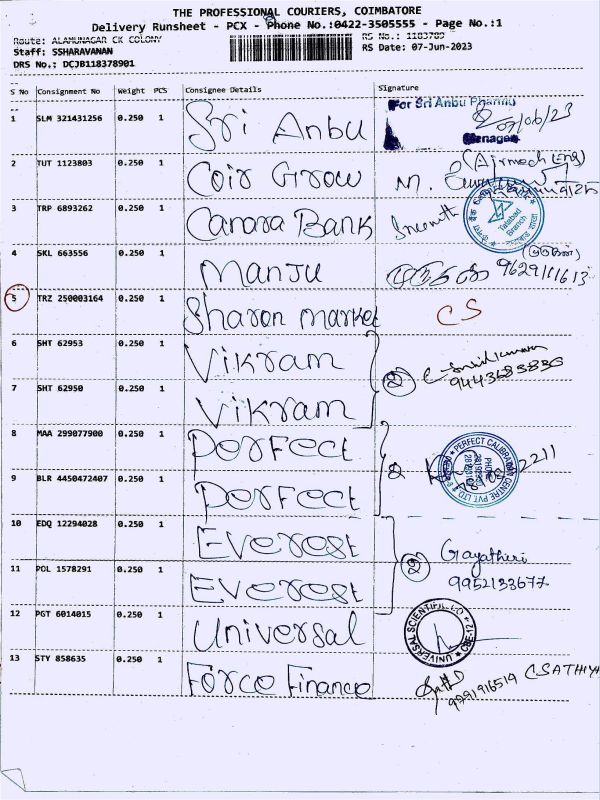 THE PROFESSIONAL COURIERS, COIMBATORE
Delivery Runsheet - PCX - Phone No.:0422-3505555 - Page No.:1
Route: ALAMUNAGAR CK COLONY
RS No.: 1183789
Staff: SSHARAVANAN
RS Date: 07-Jun-2023
DRS No.: DCJB118378901
S No Consignment No Weight PCS Consignee Details Signature
1 SLM 321431256 0.250 1 Sri Anbu For Sri Anbu Pharma
07/06/23
Manager
2 TUT 1123803 0.250 1 Coir Grow M.
3 TRP 6893262 0.250 1 Canara Bank
Branch
4 SKL 663556 0.250 1 Manju 9629111613
5 TRZ 250003164 0.250 1 Sharon market CS
6 SHT 62953 0.250 1 Vikram
7 SHT 62950 0.250 1 Vikram 2 9443685836
8 MAA 299077900 0.250 1 Perfect
9 BLR 4450472407 0.250 1 Perfect 2 PERFECT CALIBRATION CENTRE PVT LTD
10 EDQ 12294028 0.250 1 Everest
11 POL 1578291 0.250 1 Everest 2 Gayathiri
9952133677
12 PGT 6014015 0.250 1 Universal UNIVERSAL SCIENTIFIC CO CBE-12
13 STY 858635 0.250 1 Force Finance 9791916519 C SATHIYA